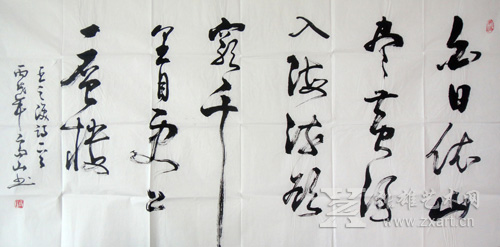 白日依山
尽黄河
入海流欲
穷千
里目更上
一层楼
王之涣诗一首
丙戌年 高山书
雅艺术网
www.zxart.cn